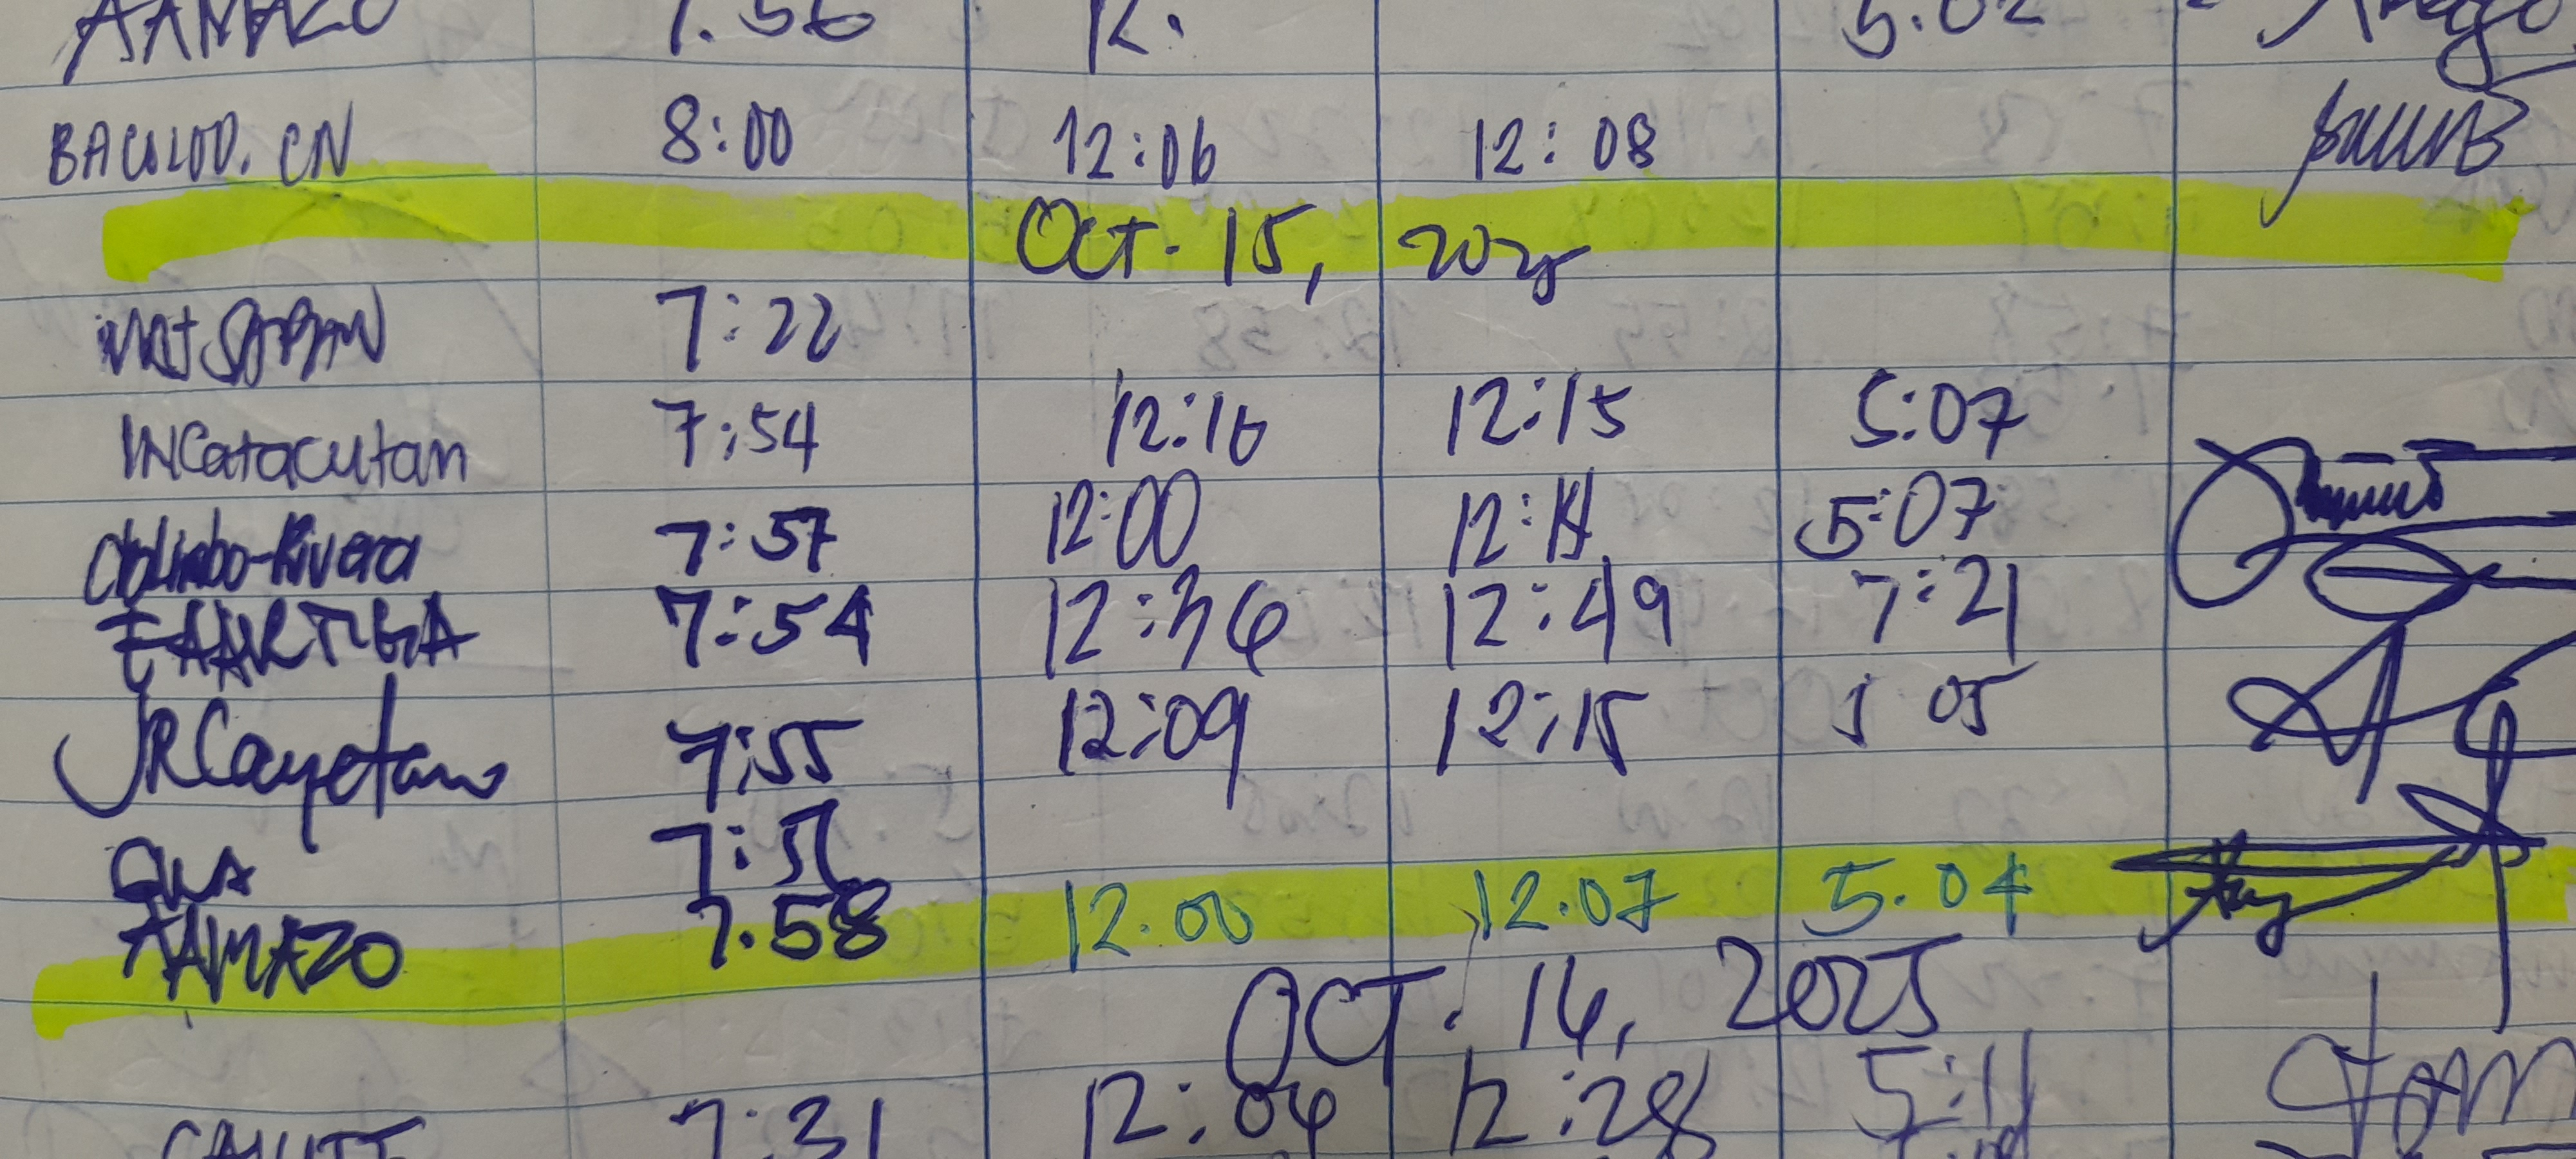 AAMAZO 7.56 12. 5.02
BACOLOD. CN 8:00 12:06 12:08
Oct. 15, 2025
7:22
INCatacutan 7:54 12:16 12:15 5:07
Olimbo-Rivera 7:57 12:00 12:14 5:07
EAARTIGA 7:54 12:36 12:49 7:21
JRCayetano 7:55 12:09 12:15 5 05
AAMAZO 7.58 12.00 12.07 5.04
OCT. 16, 2025
7:31 12:06 12:28 5:11